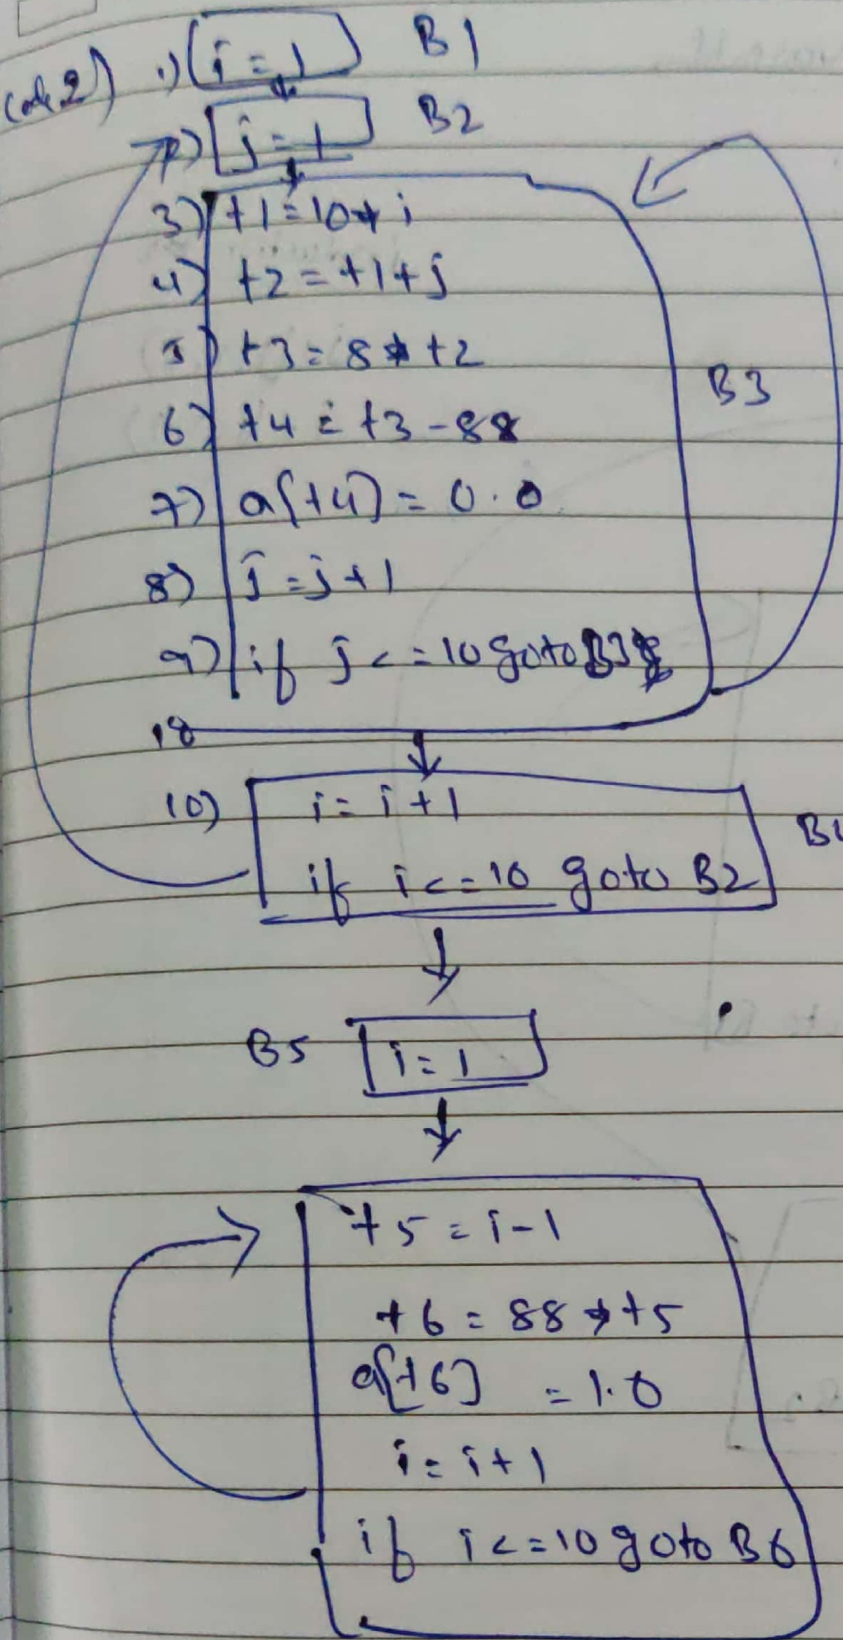 1) i = 1 B1
2) j = 1 B2
3) t1 = 10 * i
4) t2 = t1 + j
5) t3 = 8 * t2
B3
6) t4 = t3 - 88
7) a[t4] = 0.0
8) j = j + 1
9) if j <= 10 goto B3
10) i = i + 1
if i <= 10 goto B2
B5 i = 1
t5 = i - 1
t6 = 88 * t5
a[t6] = 1.0
i = i + 1
if i <= 10 goto B6